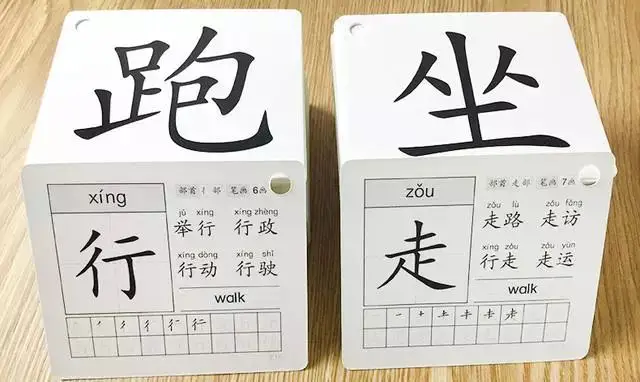 跑
xíng
行
部首 彳部 笔画 6画
jǔ xíng xíng zhèng
举行 行政
xíng dòng xíng shǐ
行动 行驶
walk
坐
zǒu
走
部首 走部 笔画 7画
zǒu lù zǒu fǎng
走路 走访
xíng zǒu zǒu yùn
行走 走运
walk